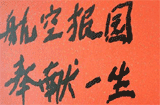 航空报国
奉献一生